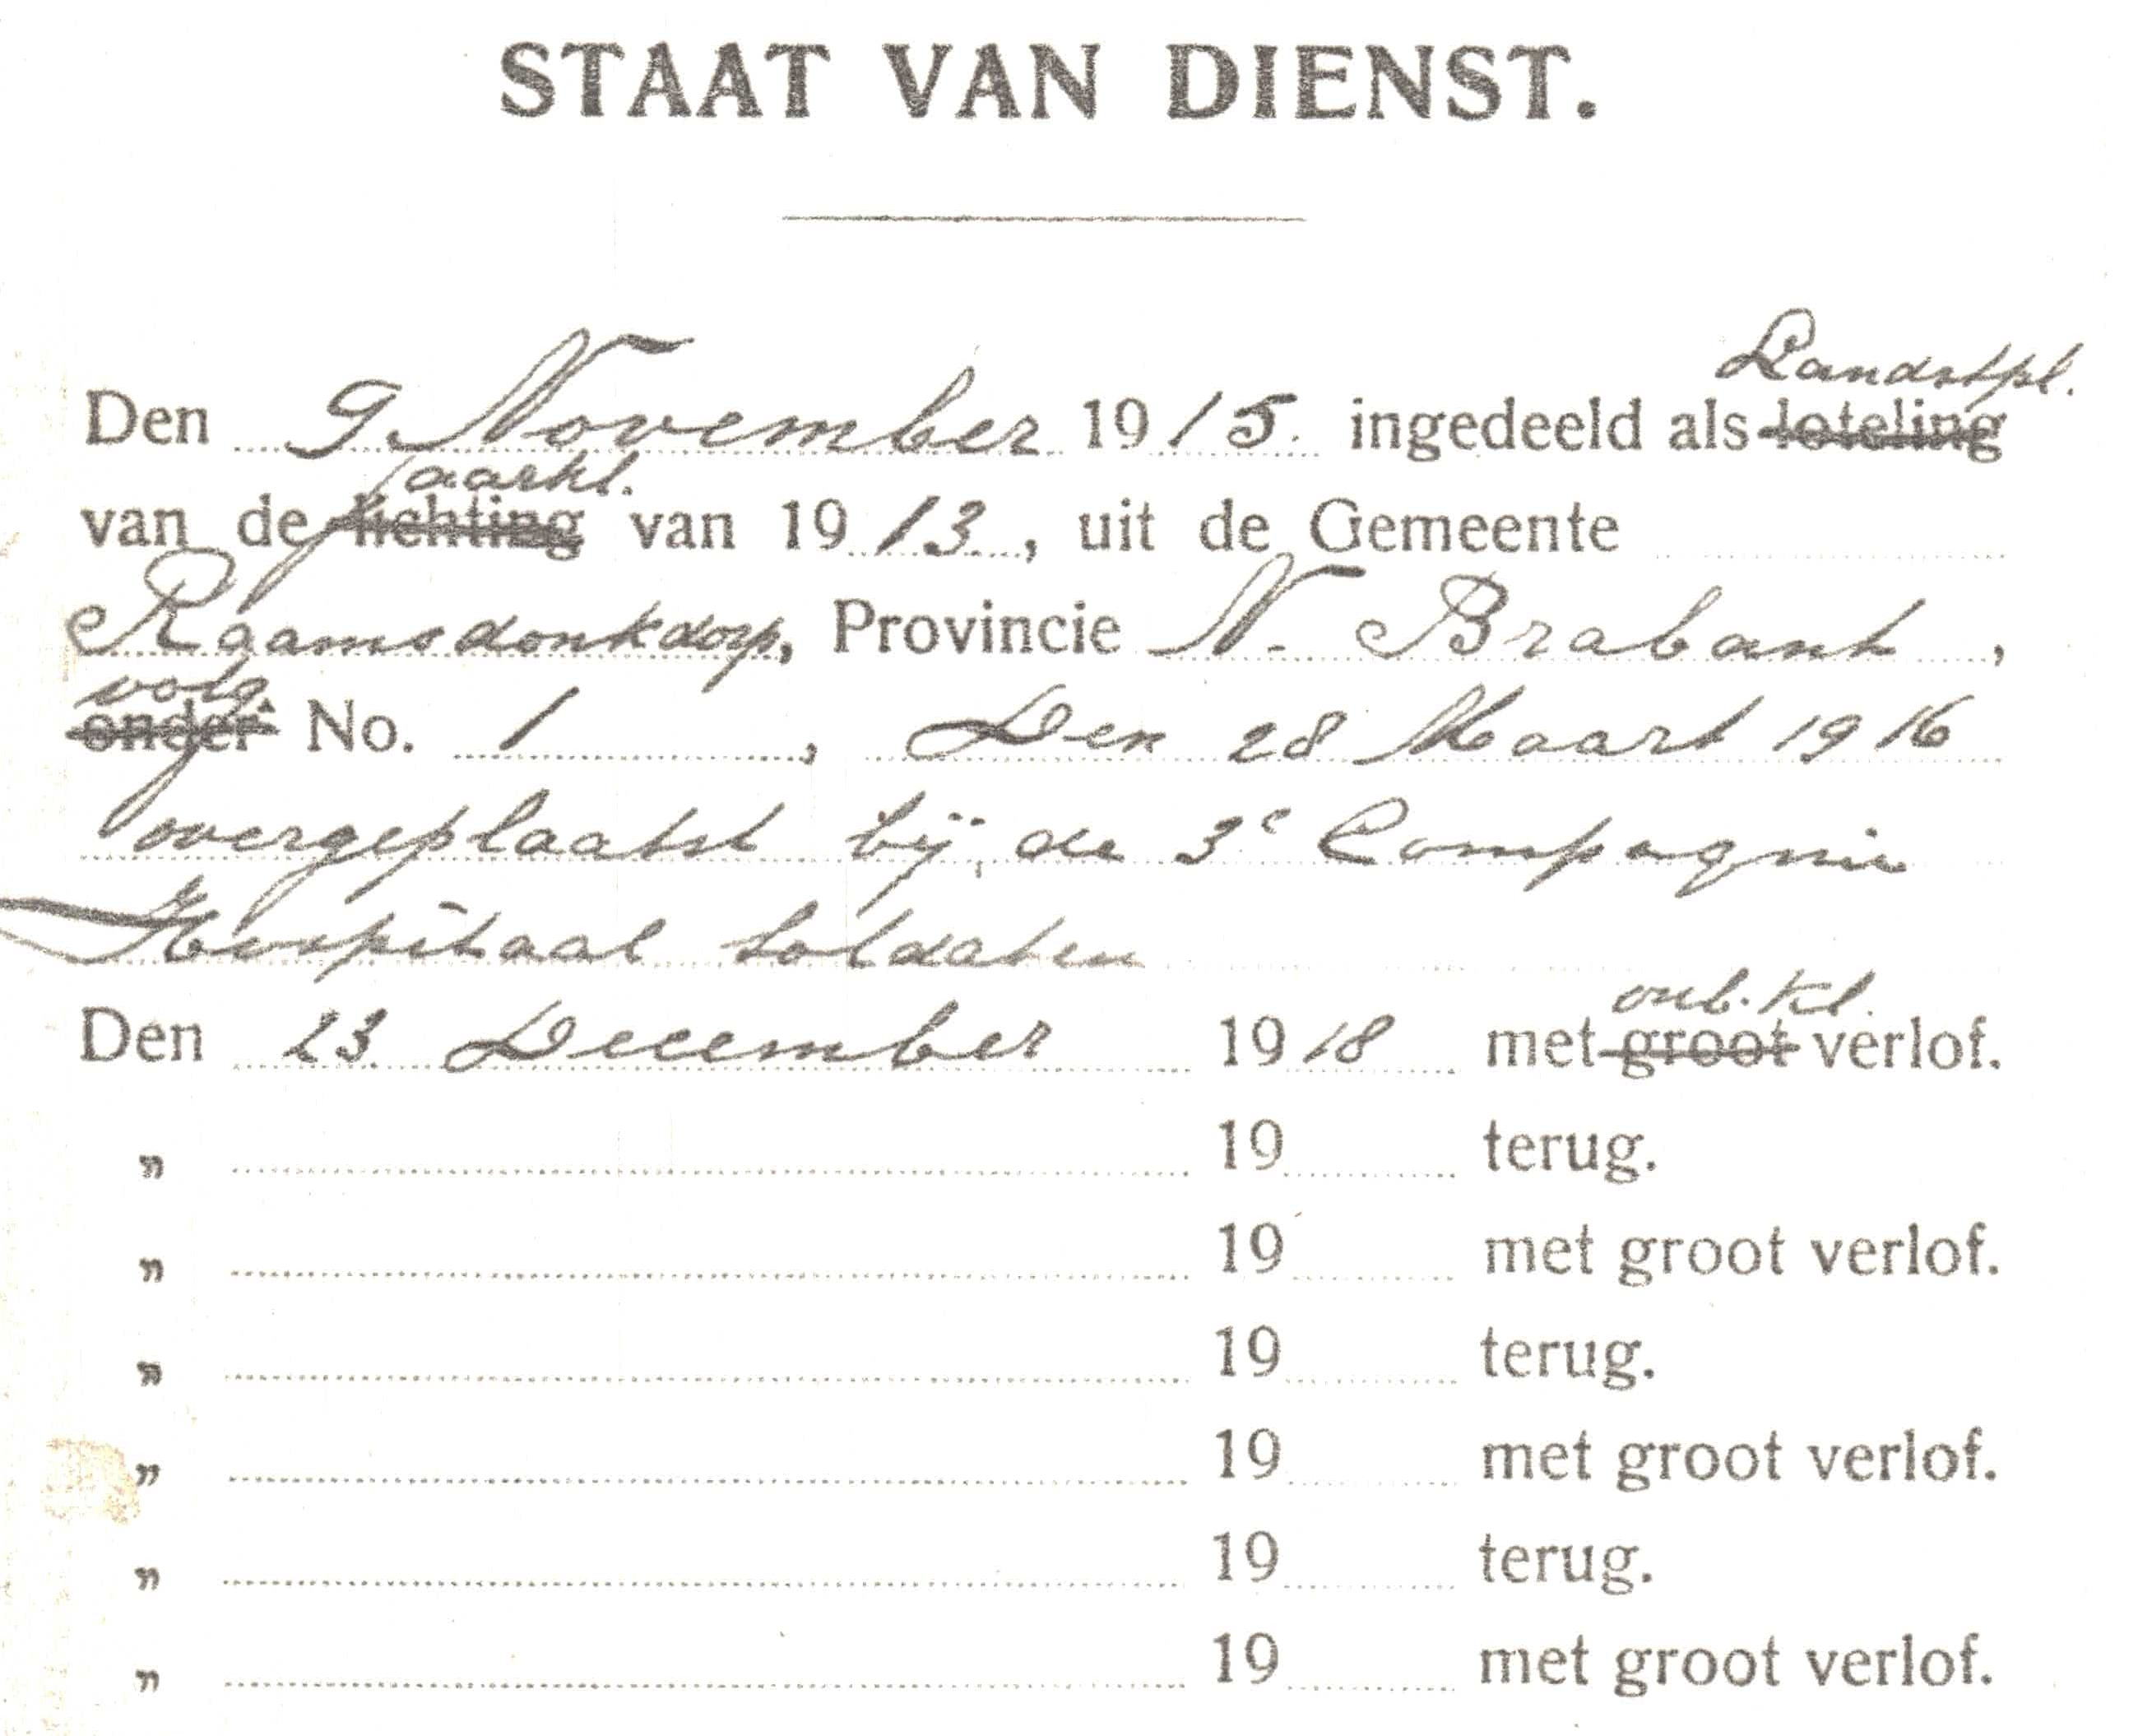 STAAT VAN DIENST.
Landstpl.
Den 9 November 1915. ingedeeld als loteling
jaarkl.
van de lichting van 1913, uit de Gemeente
Raamsdonkdorp, Provincie N. Brabant,
volg
onder No. 1, Den 28 Maart 1916
overgeplaatst bij de 3e Compagnie
Hospitaal Soldaten
onb. kl.
Den 23 December 1918 met groot verlof.
" 19 terug.
" 19 met groot verlof.
" 19 terug.
" 19 met groot verlof.
" 19 terug.
" 19 met groot verlof.